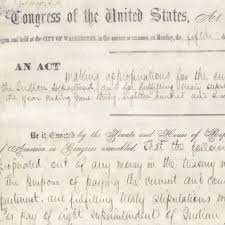 Congress of the United States, At
egun and held at the CITY OF WASHINGTON, in the District of Columbia, on Monday, the fifth
AN ACT Making appropriations for the cur
the Indian Department, and for fulfilling treaty
the year ending June thirty, eighteen hundred and
Be it Enacted by the Senate and House of Rep
of America in Congress assembled, That the following
appropriated, out of any money in the treasury
the purpose of paying the current and con
partment, and fulfilling treaty stipulations
For pay of eight Superintendents of Indian